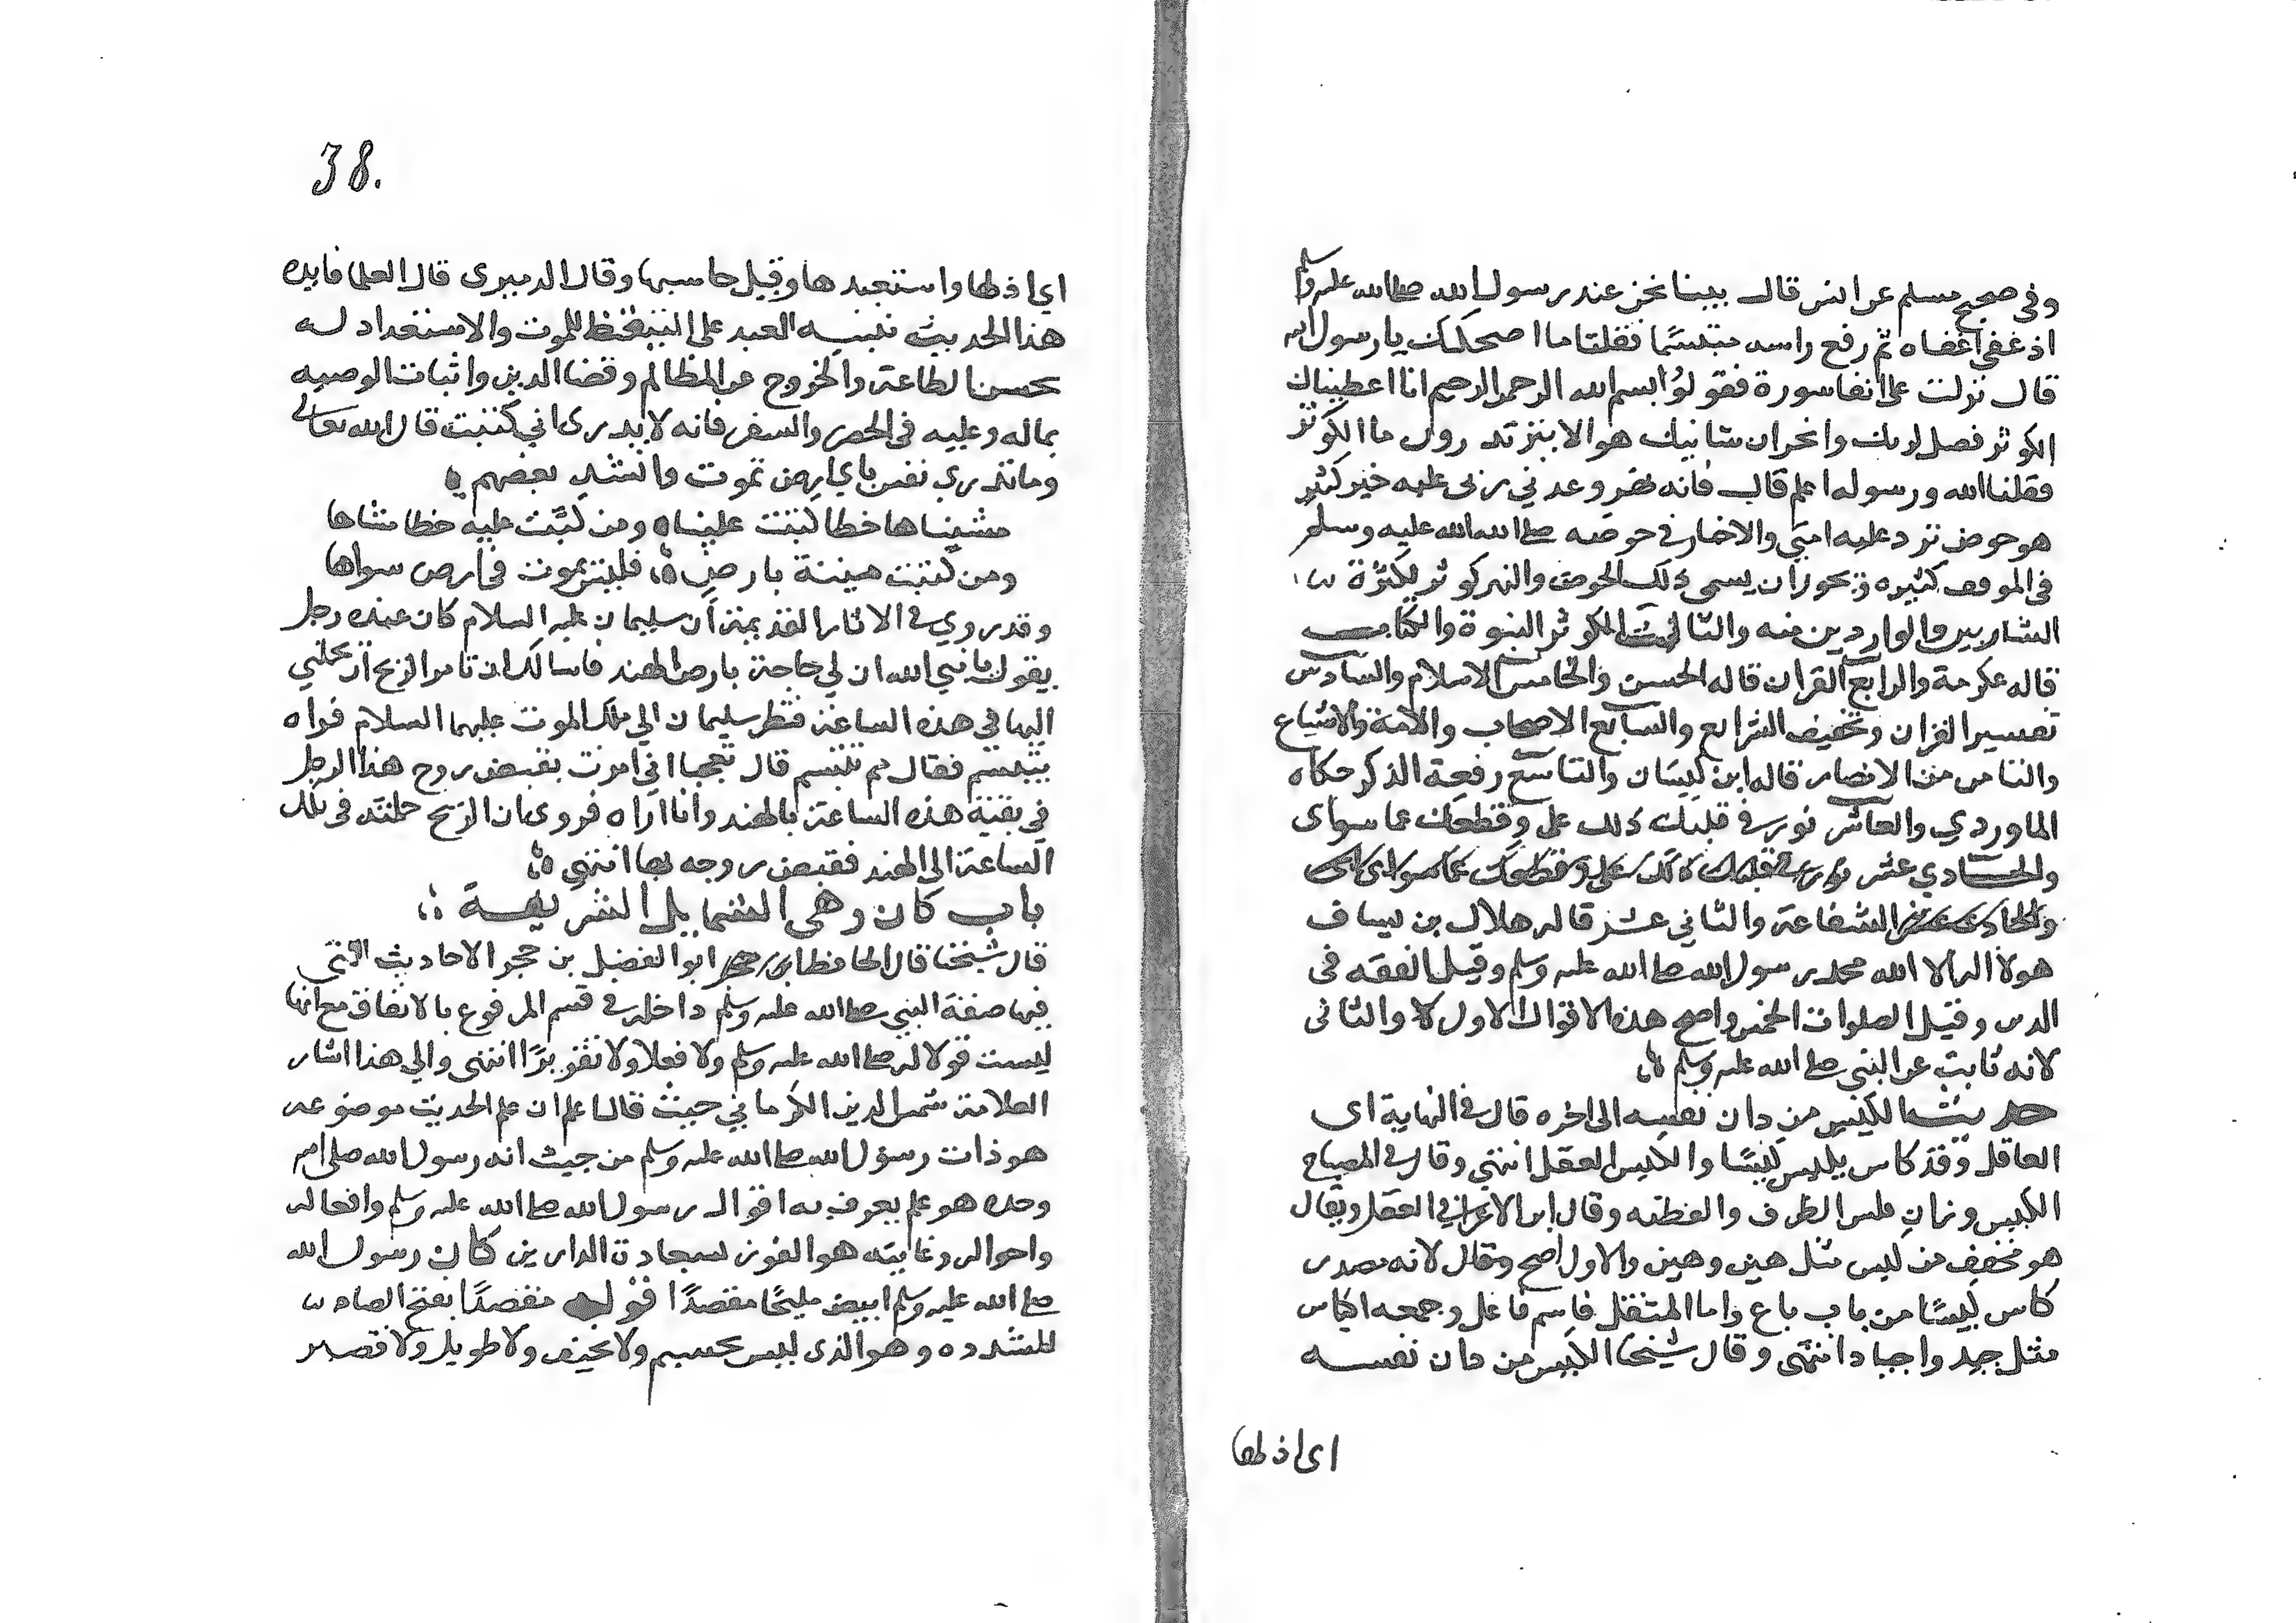 وفى صحيح مسلم عن انس قال بينا نحن عند رسول الله صلى الله عليه وسلم
اذ غفى اغفاه ثم رفع راسه متبسمًا فقلنا ما اضحكك يا رسول الله
قال نزلت على انفا سورة فقولوُا بسم الله الرحمن الرحيم انا اعطيناك
الكوثر فصل لربك وانحر ان شانيك هو الابتر تدرون ما الكوثر
فقلنا الله ورسوله اعلم قال فانه نهر وعدني ربى عليه خير كثير
هو حوض ترد عليه امتى والاخبار فى حوضه صلى الله عليه وسلم
فى الموقف كثيره ويجوز ان يسمى ذلك الحوض والنهر كوثر لكثرة
الشاربين والواردين منه والثالث الكوثر النبوة والكتاب
قاله عكرمة والرابع القران قاله الحسن والخامس الاسلام والسادس
تفسير القران وتخفيف الشرايع والسابع الاصحاب والامة والاشياع
والثامن الانصار قاله ابن كيسان والتاسع رفعة الذكر حكاه
الماوردي والعاشر نور فى قلبك دلك على وقطعك عما سواى
والحادي عشر
والحادى عشر الشفاعة والثاني عشر قاله هلال بن يساف
هو لا اله الا الله محمد رسول الله صلى الله عليه وسلم وقيل الفقه فى
الدين وقيل الصلوات الخمس واصح هذه الاقوال الاول والثانى
لانه ثابت عن النبى صلى الله عليه وسلم
حديث الكيس من دان نفسه الى اخره قال فى النهاية اى
العاقل وقد كاس يكيس كيسًا والكيس العقل انتهي وقال فى المصباح
الكيس وزان فلس الظرف والفطنه وقال ابن الاعرابي العقل ويقال
هو مخفف من كيس مثل هين وهين والاول اصح وقال لانه مصدر
كاس كيسًا من باب باع واما المثقل فاسم فاعل وجمعه اكياس
مثل جيد واجياد انتهى وقال شيخنا الكيس من دان نفسه
اى اذلها
38.
اى اذلها واستعبدها وقيل حاسبها وقال الدميرى قال العلما فايده
هذا الحديث تنبيه العبد على التيقظ للموت والاستعداد له
بحسن الطاعة والخروج عن المظالم وقضا الدين واثبات الوصيه
بماله وعليه فى الحضر والسفر فانه لا يدرى اني كتبت قال الله تعالى
وما تدري نفس باي ارض تموت وانشد بعضهم
مشيناها خطا كتبت علينا ومن كتبت عليه خطا مشاها
ومن كتبت منيته بارض فليس يموت فى ارض سواها
وقد روي فى الاثار القديمة ان سليمان عليه السلام كان عنده رجل
يقول يا نبي الله ان لي حاجة بارض الهند فاسالك ان تامر الريح ان تحملني
اليها في هذه الساعة فنظر سليمان الي ملك الموت عليهما السلام فراه
يتبسم فقال مم تتبسم قال تعجبا اني امرت بقبض روح هذا الرجل
في بقية هذه الساعة بالهند وانا اراه فروى ان الريح حملته فى تلك
الساعة الى الهند فقبض روحه بها انتهي
باب كان وهى الشمايل الشريفة
قال شيخنا قال الحافظ ابو الفضل بن حجر الاحاديث التى
فيها صفة النبي صلى الله عليه وسلم داخلة فى قسم المرفوع بالاتفاق مع انها
ليست قولا له صلى الله عليه وسلم ولا فعلا ولا تقريرًا انتهى والي هذا اشار
العلامة شمس الدين الكرماني حيث قال اعلم ان علم الحديث موضوعه
هو ذات رسول الله صلى الله عليه وسلم من حيث انه رسول الله صلى الله
وحده هو علم يعرف به اقوال رسول الله صلى الله عليه وسلم وافعاله
واحواله وغايته هو الفوز بسعادة الدارين كان رسول الله
صلى الله عليه وسلم ابيض مليحًا مقصدًا قوله مقصدًا بفتح الصاد
المشدده وهو الذى ليس بجسيم ولا نحيف ولا طويل ولا قصير